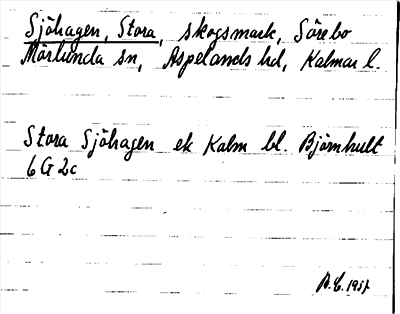 Sjöhagen, Stora, skogsmark, Sörebo
Mörlunda sn, Aspelands hd, Kalmar l.
Stora Sjöhagen ek Kalm bl. Björnhult
6G 2c
1957